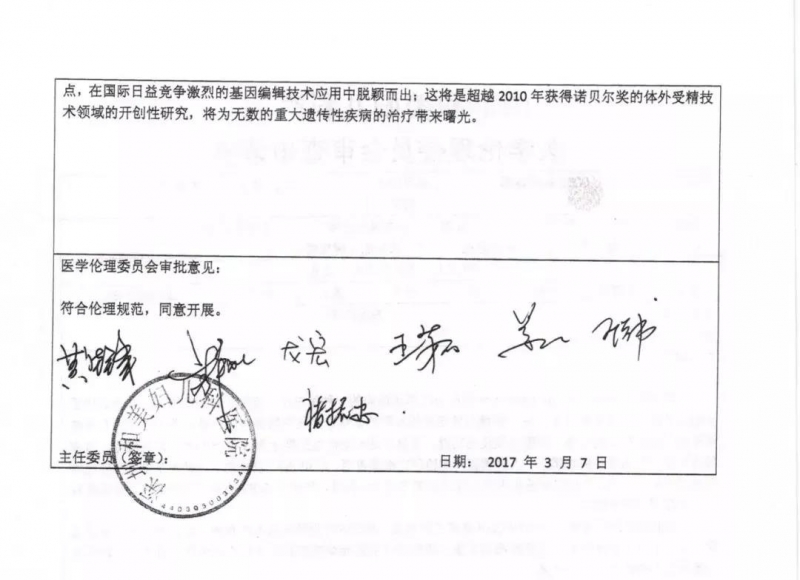 点，在国际日益竞争激烈的基因编辑技术应用中脱颖而出；这将是超越 2010 年获得诺贝尔奖的体外受精技
术领域的开创性研究，将为无数的重大遗传性疾病的治疗带来曙光。
医学伦理委员会审批意见：
符合伦理规范，同意开展。
戈宏
深圳和美妇儿科医院
主任委员（签章）：
日期： 2017 年 3 月 7 日